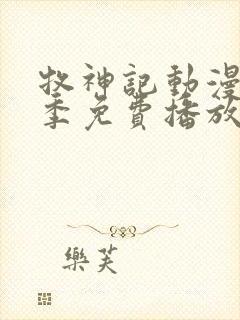 牧神記動漫
季免費播放
樂芙